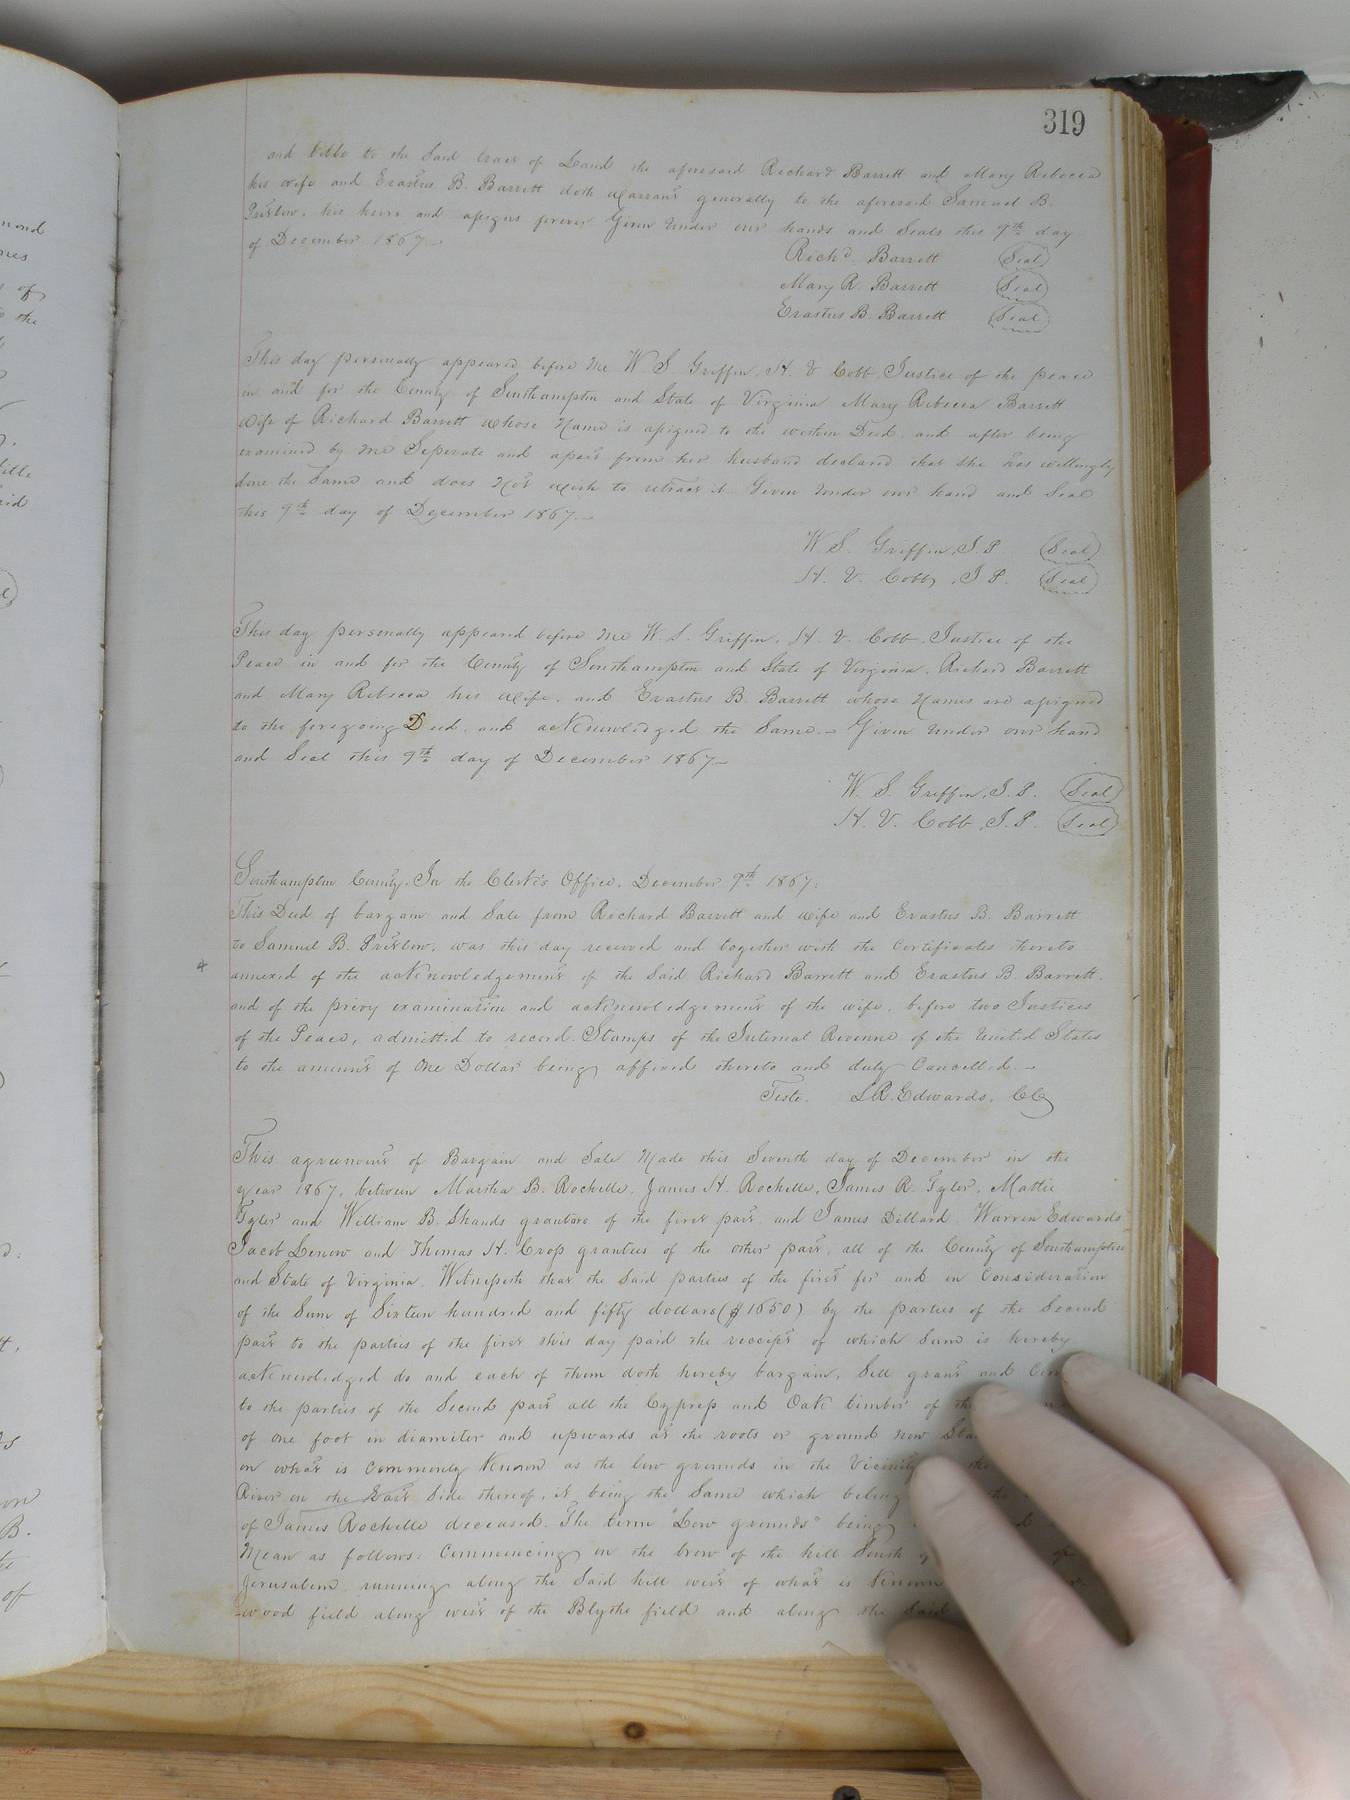 319
and title to the Said tract of Land the aforesaid Richard Barrett and Mary Rebecca
his wife and Erastus B. Barrett doth Warrant generally to the aforesaid Samuel B.
Pretlow, his heirs and assigns forever Given Under our hands and Seals this 9th day
of December 1867.—
Richd. Barrett (Seal)
Mary R. Barrett (Seal)
Erastus B. Barrett (Seal)
This day personally appeared before Me W. S. Griffin, H. V. Cobb Justice of the peace
in and for the County of Southampton and State of Virginia Mary Rebecca Barrett
Wife of Richard Barrett whose Name is assigned to the within Deed, and after being
examined by me Seperate and apart from her husband declared that she has willingly
done the Same and does Not wish to retract it. Given Under our hand and Seal
this 9th day of December 1867.—
W. S. Griffin, J. P. (Seal)
H. V. Cobb, J. P. (Seal)
This day personally appeared before Me W. S. Griffin, H. V. Cobb Justice of the
Peace in and for the County of Southampton and State of Virginia, Richard Barrett
and Mary Rebecca his Wife, and Erastus B. Barrett whose Names are assigned
to the foregoing Deed, and acknowledged the Same.— Given Under our hand
and Seal this 9th day of December 1867—
W. S. Griffin, J. P. (Seal)
H. V. Cobb, J. P. (Seal)
Southampton County. In the Clerk's Office, December 9th 1867.
This Deed of bargain and Sale from Richard Barrett and wife and Erastus B. Barrett
to Samuel B. Pretlow, was this day received and together with the Certificates thereto
annexed of the acknowledgement of the Said Richard Barrett and Erastus B. Barrett.
and of the privy examination and acknowledgement of the wife, before two Justices
of the Peace, admitted to record. Stamps of the Internal Revenue of the United States
to the amount of One Dollar being affixed thereto and duly Cancelled.—
Teste. L. R. Edwards, CC
This agreement of Bargain and Sale Made this Seventh day of December in the
year 1867, between Martha B. Rochelle, James H. Rochelle, James R. Tyler, Mattie
Tyler and William B. Shands grantors of the first part and James Dillard, Warren Edwards
Jacob Lenow and Thomas H. Cross grantees of the other part, all of the County of Southampton
and State of Virginia, Witnesseth that the Said parties of the first for and in Consideration
of the Sum of Sixteen hundred and fifty dollars ($1650) by the parties of the Second
part to the parties of the first this day paid the receipt of which Sum is hereby
acknowledged do and each of them doth hereby bargain, Sell grant and
to the parties of the Second part all the Cypress and Oak timber of the
of one foot in diameter and upwards at the roots or ground now
on what is Commonly Known as the low grounds in the Vicinity the
River on the East Side thereof, it being the Same which belong the
of James Rochelle deceased. The term "Low grounds" being
Mean as follows: Commencing on the brow of the hill South of
Jerusalem running along the Said hill west of what is Known
wood field along west of the Blythe field and along the Said